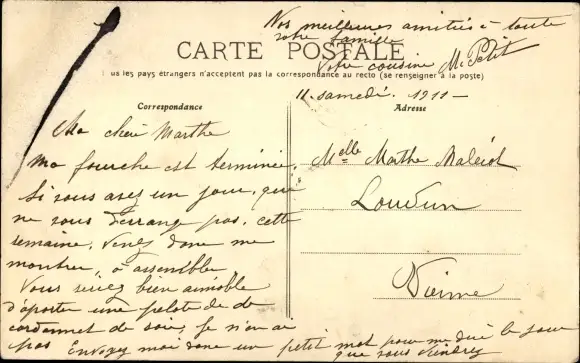 Nos meilleures amitiés à toute
votre famille
Votre cousine M Petit
CARTE POSTALE
us les pays étrangers n'acceptent pas la correspondance au recto (se renseigner à la poste)
11. samedi. 1911 —
Correspondance
Adresse
Ma chère Marthe
Ma fourche est terminée.
Si vous avez un jour, qui
ne vous dérange pas, cette
semaine. Venez donc me
montrer, à assembler
Vous seriez bien aimable
d'aporter une pelote de de
cordonnet de soie, je n'en ai
pas Envoyez moi donc un petit mot pour me dire le jour
que vous viendrez
Melle Marthe
Loudun
Vienne